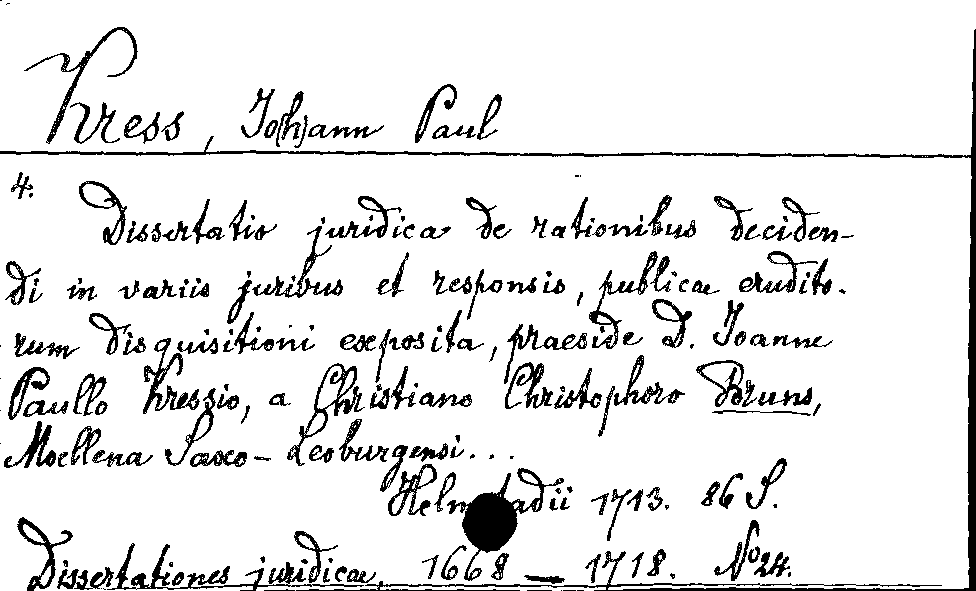 Kress, Jo(h)ann Paul
4.
Dissertatio juridica de rationibus deciden-
di in variis juribus et responsis, publicae erudito-
rum disquisitioni exposita, praeside D. Joanne
Paullo Kressio, a Christiano Christophoro Bruns,
Moellena Saxo-Leoburgensi...
Helmstadii 1713. 86 S.
Dissertationes juridicae, 1668 — 1718. No 24.